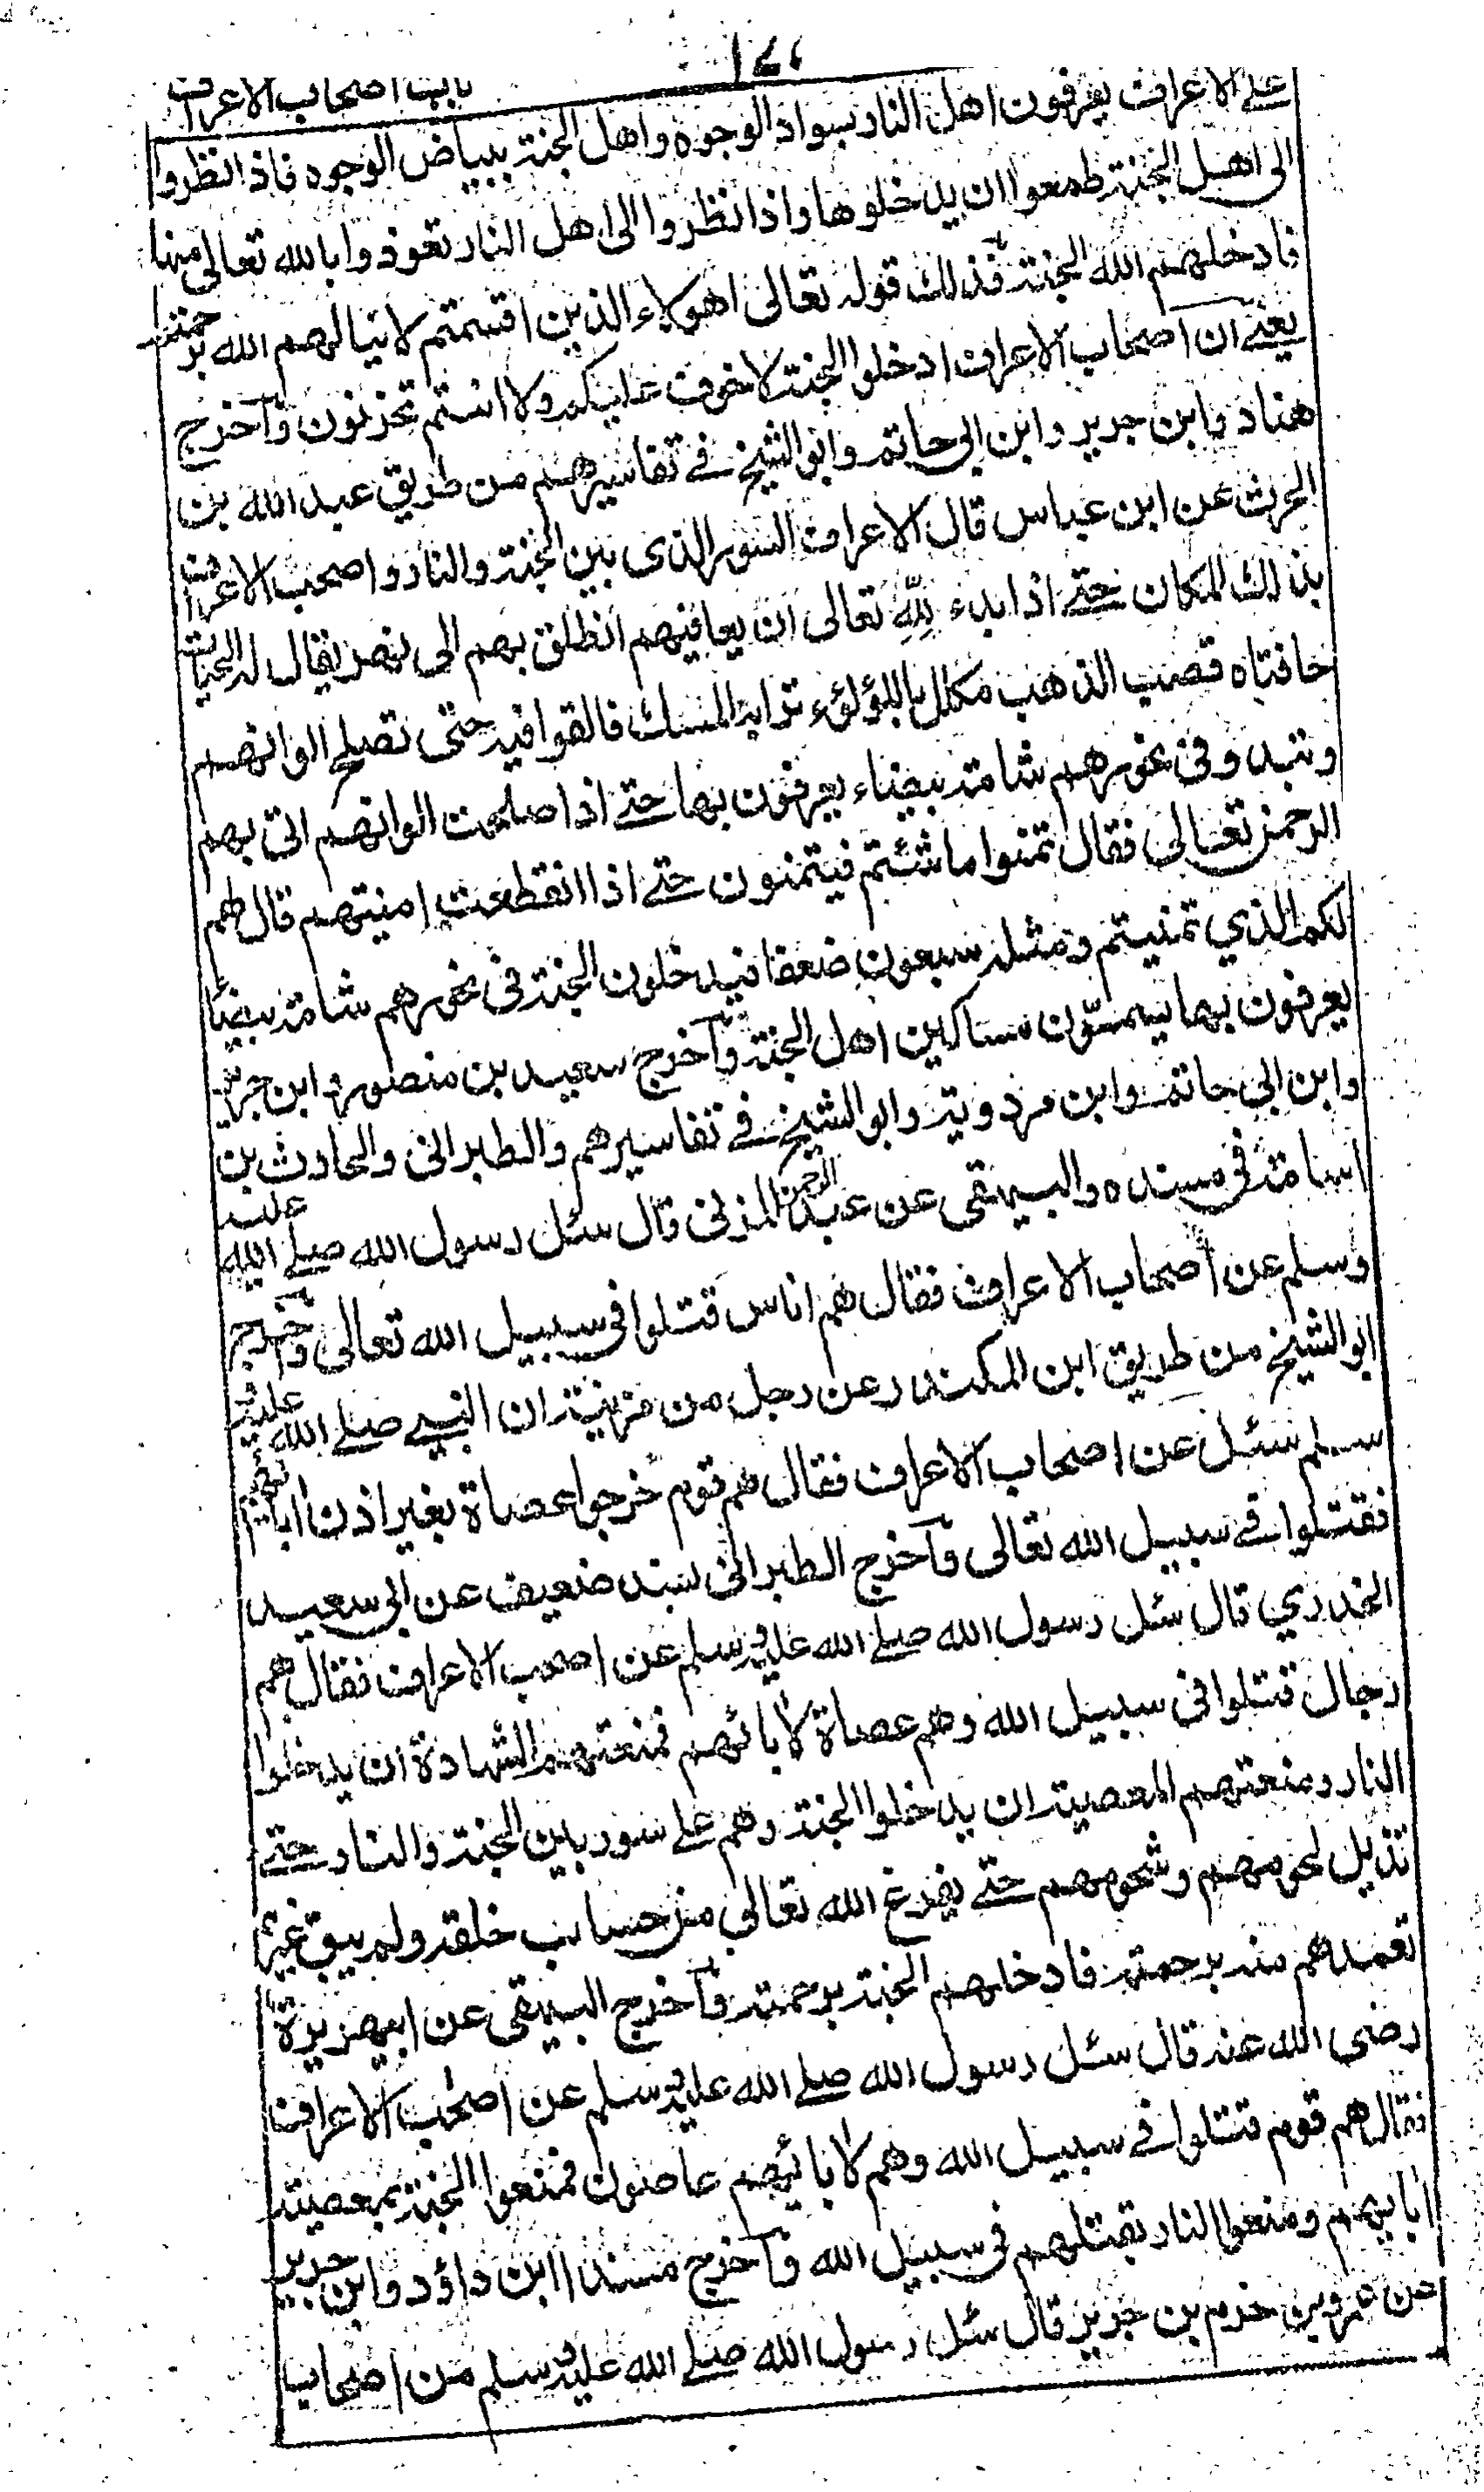 باب اصحاب الاعراف
على الاعراف يعرفون اهل النار بسواد الوجوه واهل الجنة ببياض الوجوه فاذا نظروا
الى اهل الجنة طمعوا ان يدخلوها واذا نظروا الى اهل النار تعوذوا بالله تعالى منها
فادخلهم الله الجنة فذلك قوله تعالى اهولاء الذين اقسمتم لا ينالهم الله برحمته
يعنى ان اصحاب الاعراف ادخلوا الجنة لا خوف عليكم ولا انتم تحزنون وآخرج
هناد وابن جرير وابن ابى حاتم وابو الشيخ فے تفاسيرهم من طريق عبد الله بن
الحرث عن ابن عباس قال الاعراف السور الذى بين الجنة والنار واصحب الاعراف
بذلك المكان حتے اذا بدء لله تعالى ان يعافيهم انطلق بهم الى نهر يقال له الحيات
حافتاه قصب الذهب مكلل باللؤلؤء ترابه المسك فالقوا فيه حتى تصلح الوانهم
وتبدو فى نحورهم شامة بيضاء يعرفون بها حتے اذا صلحت الوانهم اتى بهم
الرحمن تعالى فقال تمنوا ما شئتم فيتمنون حتے اذا انقطعت امنيتهم قال لهم
لكم الذي تمنيتم ومثله سبعون ضعفا فيدخلون الجنة فى نحورهم شامة بيضاء
يعرفون بها يسمّون مساكين اهل الجنة وآخرج سعيد بن منصور وابن جرير
وابن ابى حاتم وابن مردويه وابو الشيخ فے تفاسيرهم والطبرانى والحارث بن
اسامة فى مسنده والبيهقى عن عبد الرحمن المزنى قال سئل رسول الله صلے الله عليه
وسلم عن اصحاب الاعراف فقال هم اناس قتلوا فى سبيل الله تعالى وآخرج
ابو الشيخ من طريق ابن المكندر عن رجل من مزينة ان النبے صلے الله عليه و
سلم سئل عن اصحاب الاعراف فقال هم قوم خرجوا عصاة بغير اذن ابائهم
فقتلوا فے سبيل الله تعالى وآخرج الطبرانى بسند ضعيف عن ابى سعيد
الخدري قال سئل رسول الله صلے الله عليه وسلم عن اصحب الاعراف فقال هم
رجال قتلوا فى سبيل الله وهم عصاة لابائهم فمنعتهم الشهادة ان يدخلوا
النار ومنعتهم المعصية ان يدخلوا الجنة وهم على سور بين الجنة والنار حتے
تذبل لحومهم وشحومهم حتے يفرغ الله تعالى من حساب خلقه ولم يبق غيرهم
تغمدهم منه برحمته فادخلهم الجنة برحمته وآخرج البيهقى عن ابيهريرة
رضى الله عنه قال سئل رسول الله صلے الله عليه وسلم عن اصحب الاعراف
فقال هم قوم قتلوا فے سبيل الله وهم لابائهم عاصون فمنعوا الجنة بمعصيته
ابايهم ومنعوا النار بقتلهم فى سبيل الله وآخرج مسندا ابن داؤد وابن جرير
عن عمرو بن خرم بن جرير قال سئل رسول الله صلے الله عليه وسلم من اصحاب